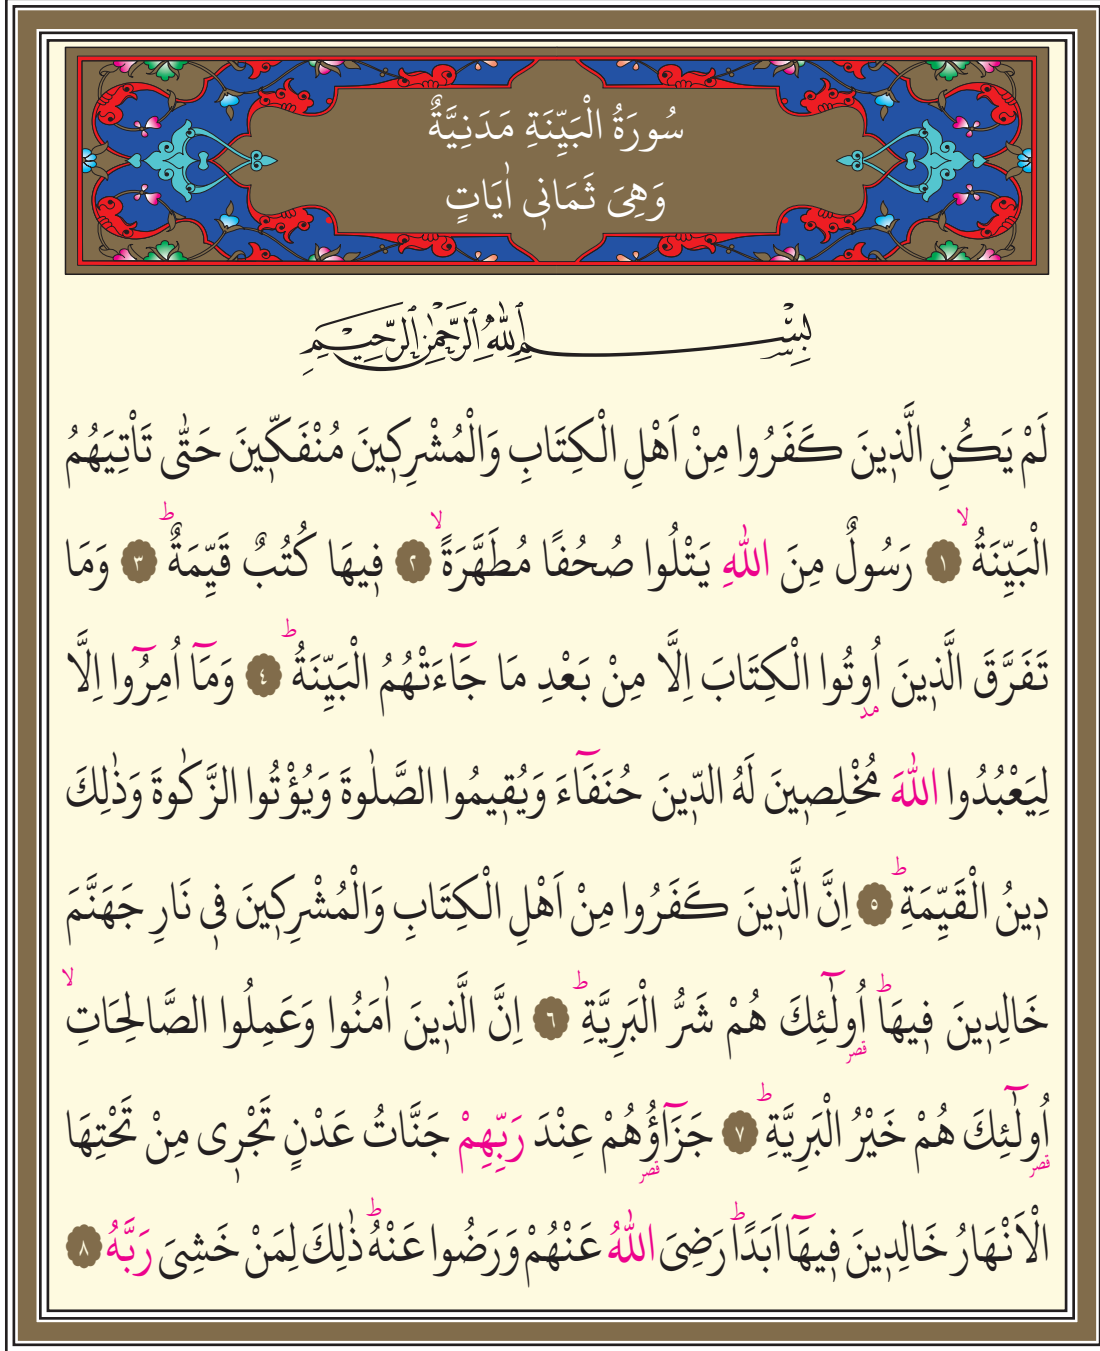 سُورَةُ الْبَيِّنَةِ مَدَنِيَّةٌ
وَهِيَ ثَمَانٖي اٰيَاتٍ
بِسْمِ اللّٰهِ الرَّحْمٰنِ الرَّحِيمِ
لَمْ يَكُنِ الَّذٖينَ كَفَرُوا مِنْ اَهْلِ الْكِتَابِ وَالْمُشْرِكٖينَ مُنْفَكّٖينَ حَتّٰى تَأْتِيَهُمُ
الْبَيِّنَةُۙ ١ رَسُولٌ مِنَ اللّٰهِ يَتْلُوا صُحُفًا مُطَهَّرَةًۙ ٢ فٖيهَا كُتُبٌ قَيِّمَةٌؕ ٣ وَمَا
تَفَرَّقَ الَّذٖينَ اُو۫تُوا الْكِتَابَ اِلَّا مِنْ بَعْدِ مَا جَٓاءَتْهُمُ الْبَيِّنَةُؕ ٤ وَمَٓا اُمِرُٓوا اِلَّا
مد
لِيَعْبُدُوا اللّٰهَ مُخْلِصٖينَ لَهُ الدّٖينَ حُنَفَٓاءَ وَيُقٖيمُوا الصَّلٰوةَ وَيُؤْتُوا الزَّكٰوةَ وَذٰلِكَ
دٖينُ الْقَيِّمَةِؕ ٥ اِنَّ الَّذٖينَ كَفَرُوا مِنْ اَهْلِ الْكِتَابِ وَالْمُشْرِكٖينَ فٖي نَارِ جَهَنَّمَ
خَالِدٖينَ فٖيهَاؕ اُولٰٓئِكَ هُمْ شَرُّ الْبَرِيَّةِؕ ٦ اِنَّ الَّذٖينَ اٰمَنُوا وَعَمِلُوا الصَّالِحَاتِۙ
قصر
اُولٰٓئِكَ هُمْ خَيْرُ الْبَرِيَّةِؕ ٧ جَزَٓاؤُهُمْ عِنْدَ رَبِّهِمْ جَنَّاتُ عَدْنٍ تَجْرٖى مِنْ تَحْتِهَا
قصر قصر
الْاَنْهَارُ خَالِدٖينَ فٖيهَٓا اَبَدًاؕ رَضِىَ اللّٰهُ عَنْهُمْ وَرَضُوا عَنْهُؕ ذٰلِكَ لِمَنْ خَشِىَ رَبَّهُ ٨